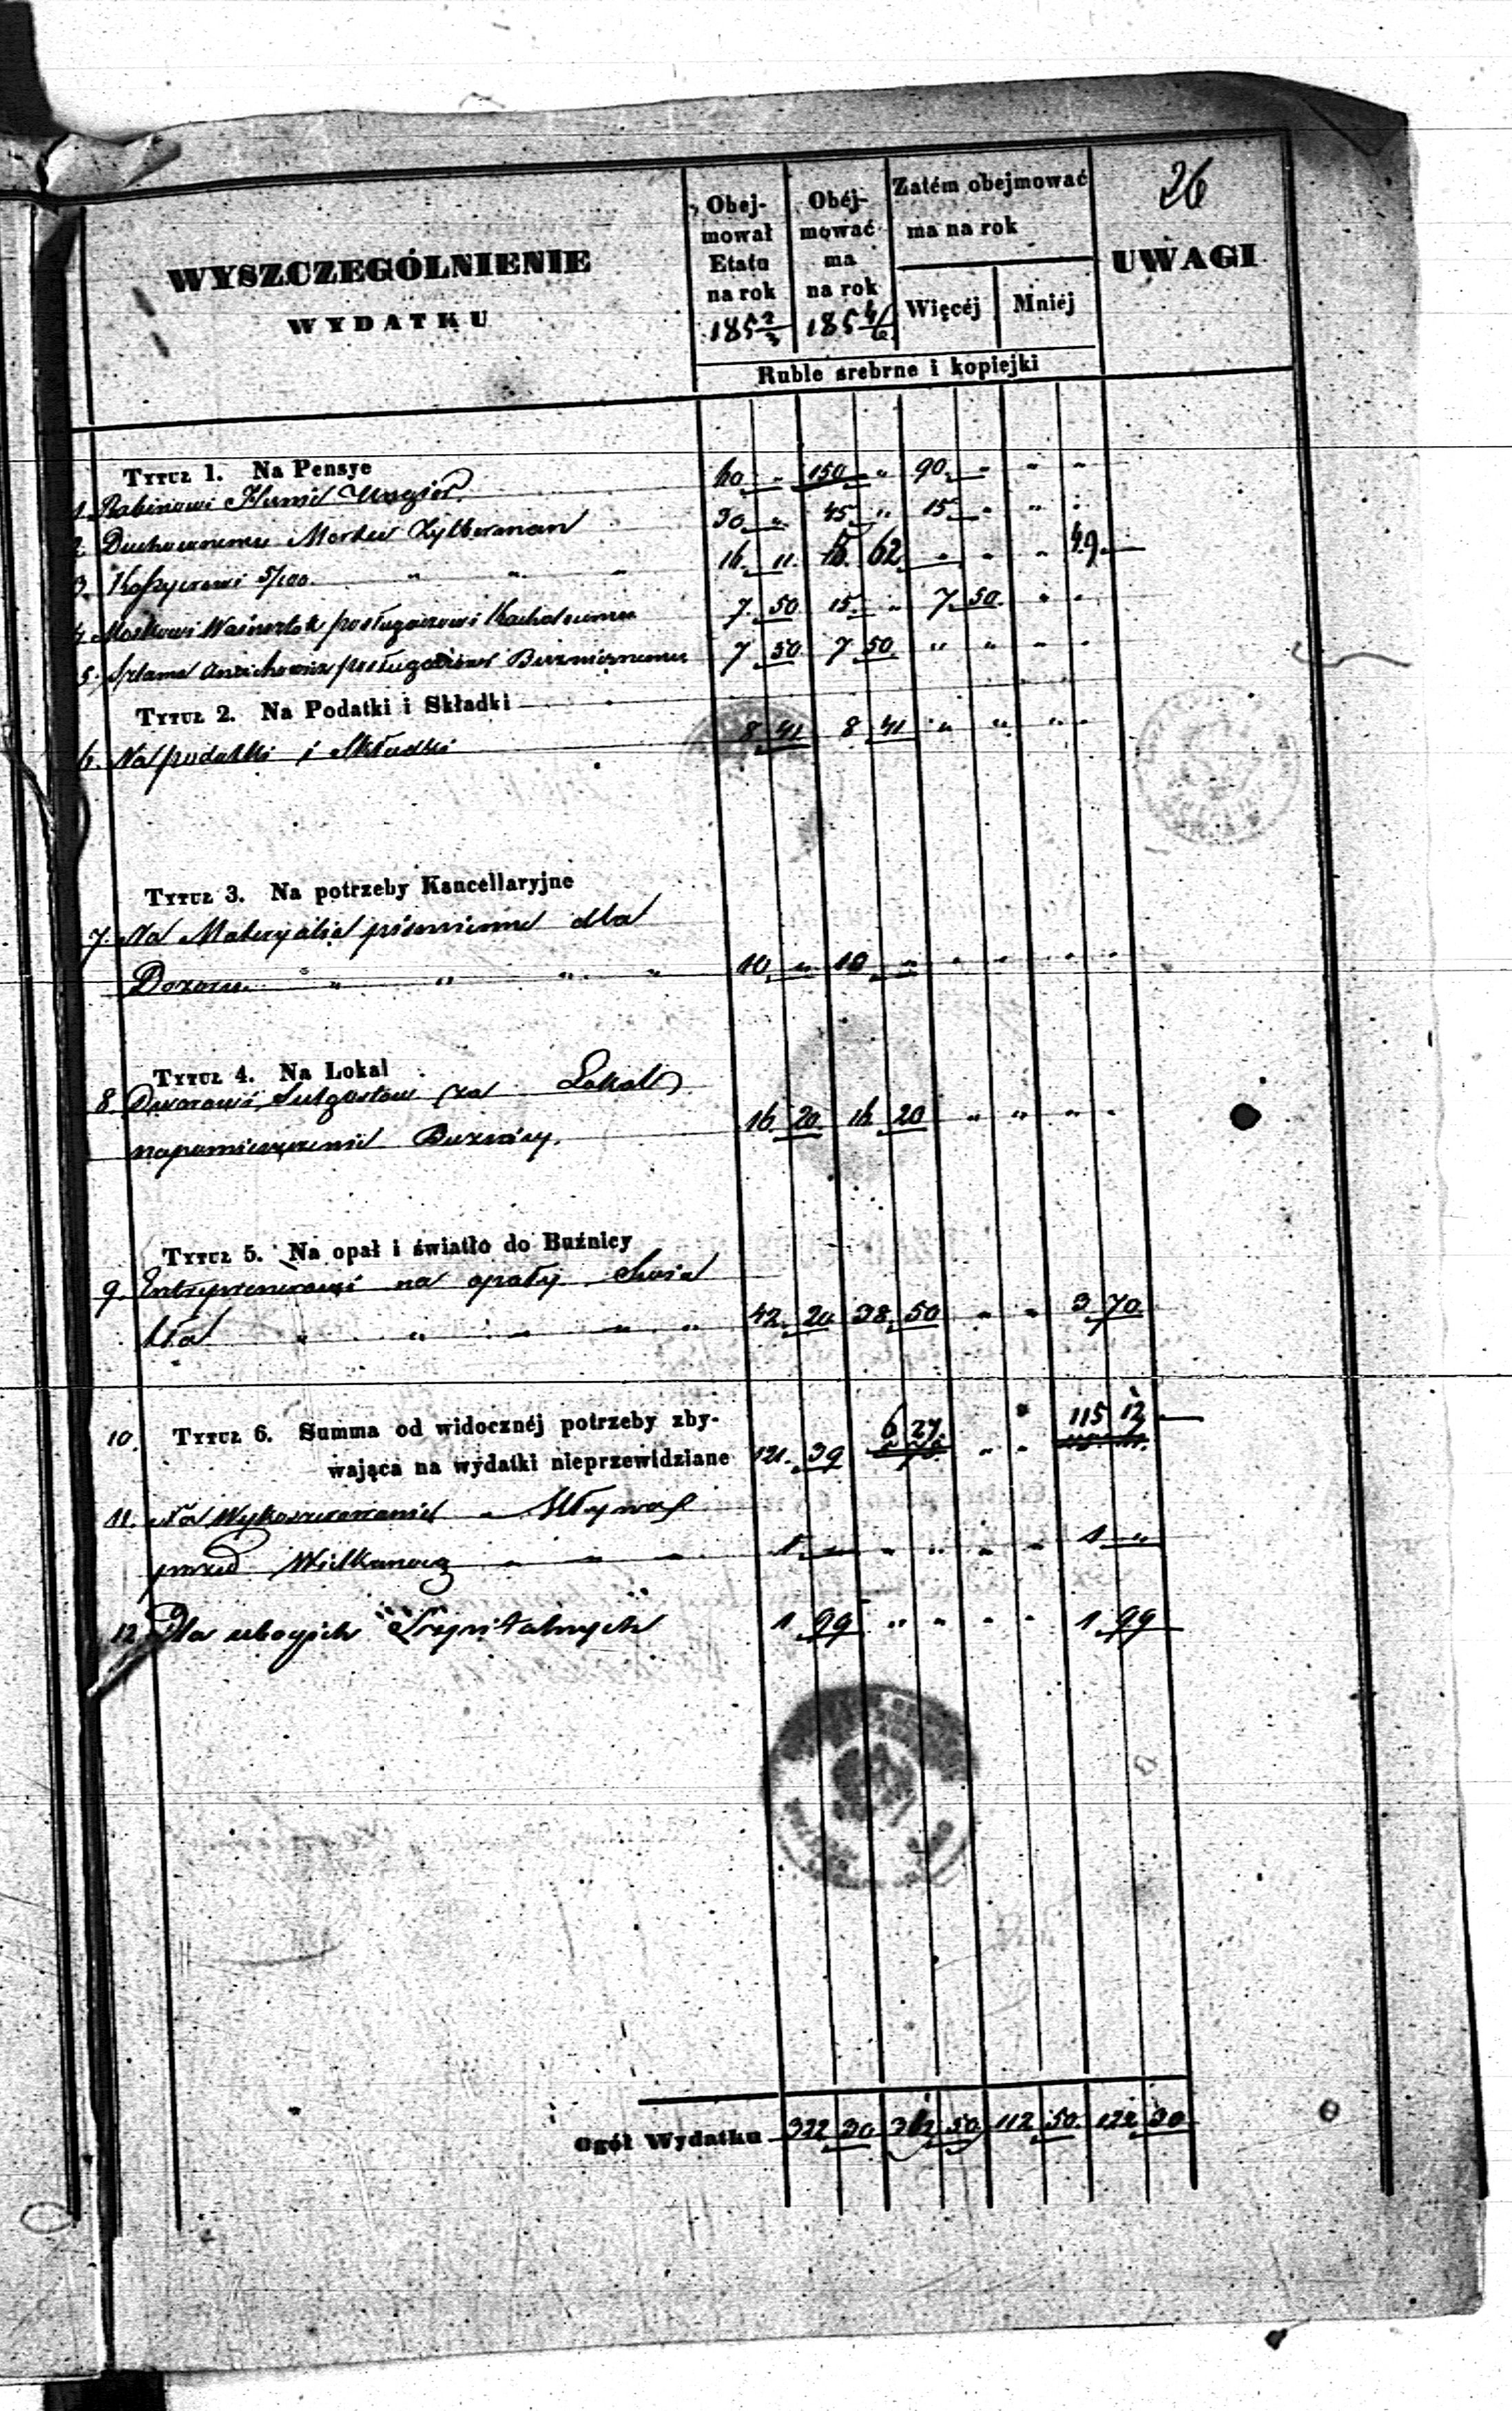 26
WYSZCZEGÓLNIENIE
WYDATKU
Obej-
mował
Etatu
na rok
185 2/3
Obéj-
mować
ma
na rok
185 4/6
Zatém obejmować
ma na rok
Więcéj
Mniéj
UWAGI
Ruble srebrne i kopiejki
Tytuł 1. Na Pensye
1. Rabinowi 60 „ 150 „ 90 „ „ „
2. Duchownemu Zylberman 30 „ 45 „ 15 „ „ „
3. 5/100 „ „ „ 16 11 15 62 „ „ „ 49
4. Moskowi posługaczowi 7 50 15 „ 7 50 „ „
5. Szlama posługaczowi Buznicznemu 7 50 7 50 „ „ „ „
Tytuł 2. Na Podatki i Składki
6. Na podatki i Składki 8 41 8 41 „ „ „ „
Tytuł 3. Na potrzeby Kancellaryjne
7. Na Materyalia piśmienne dla
Dozoru „ „ „ „ 10 „ 10 „ „ „ „ „
Tytuł 4. Na Lokal
8. Dworowi za Lokal
na pomieszczenie Buznicy. 16 20 16 20 „ „ „ „
Tytuł 5. Na opał i światło do Buźnicy
9. na opały i świa
tła „ „ „ „ „ 42 20 38 50 „ „ 3 70
10. Tytuł 6. Summa od widocznéj potrzeby zby-
wająca na wydatki nieprzewidziane 121 39 6 27 „ „ 115 12
11. Na
przed Wielkanocą „ „ „ 1 „ „ „ „ „ 1 „
12. Dla ubogich Szpitalnych 1 99 „ „ „ „ 1 99
Ogół Wydatku 322 30 312 50 112 50 122 30